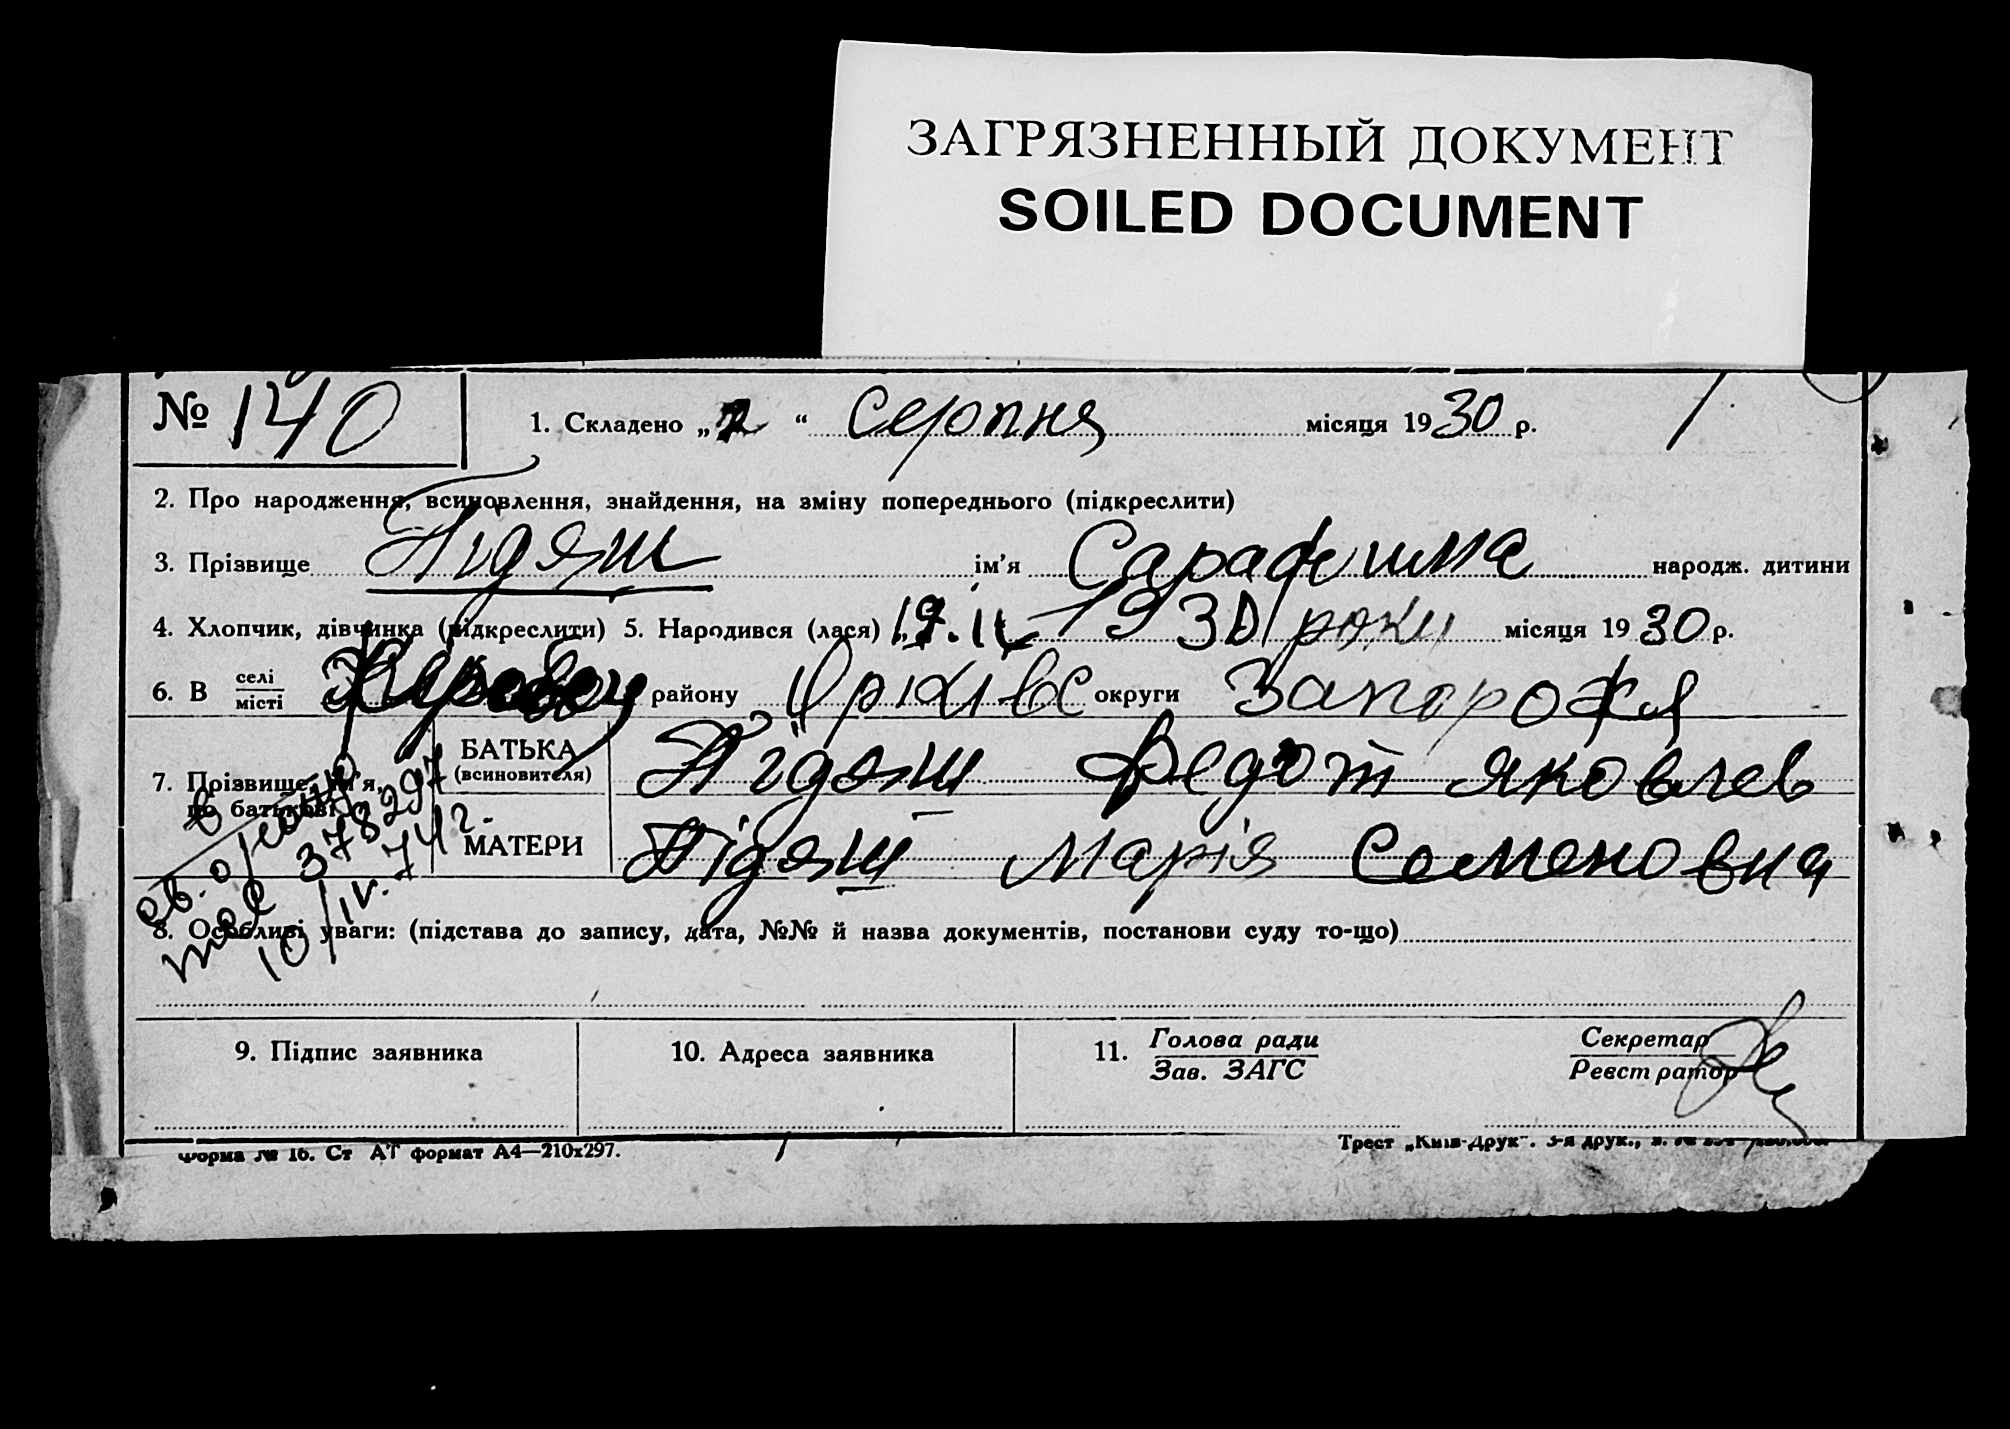 ЗАГРЯЗНЕННЫЙ ДОКУМЕНТ
SOILED DOCUMENT
№ 140
1. Складено „2“ серпня місяця 1930 р.
2. Про народження, всиновлення, знайдення, на зміну попереднього (підкреслити)
3. Прізвище Підяш ім’я Сарафима народж. дитини
4. Хлопчик, дівчинка (підкреслити) 5. Народився (лася) 1930 роки місяця 1930 р.
6. В селі
місті
району Оріхівс округи Запорожя
7. Прізвище, ім’я,
по батькові
БАТЬКА
(всиновителя)
Підяш Федот Яковлев
МАТЕРИ
Підяш Марія Семеновна
378297
10/IV. 74 г.
8. Особливі уваги: (підстава до запису, дата, №№ й назва документів, постанови суду то-що)
9. Підпис заявника
10. Адреса заявника
11. Голова ради
Зав. ЗАГС
Секретар
Реєстратор
Форма № 16. Ст АТ формат А4—210х297.
Трест „Київ-Друк“. 3-я друк.,